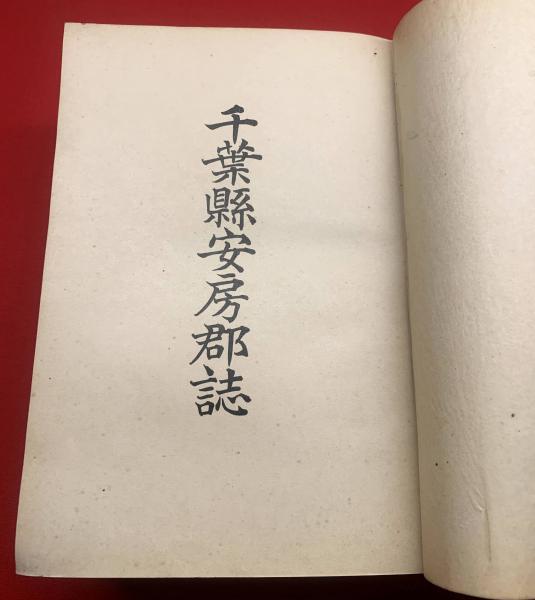 千葉縣安房郡誌